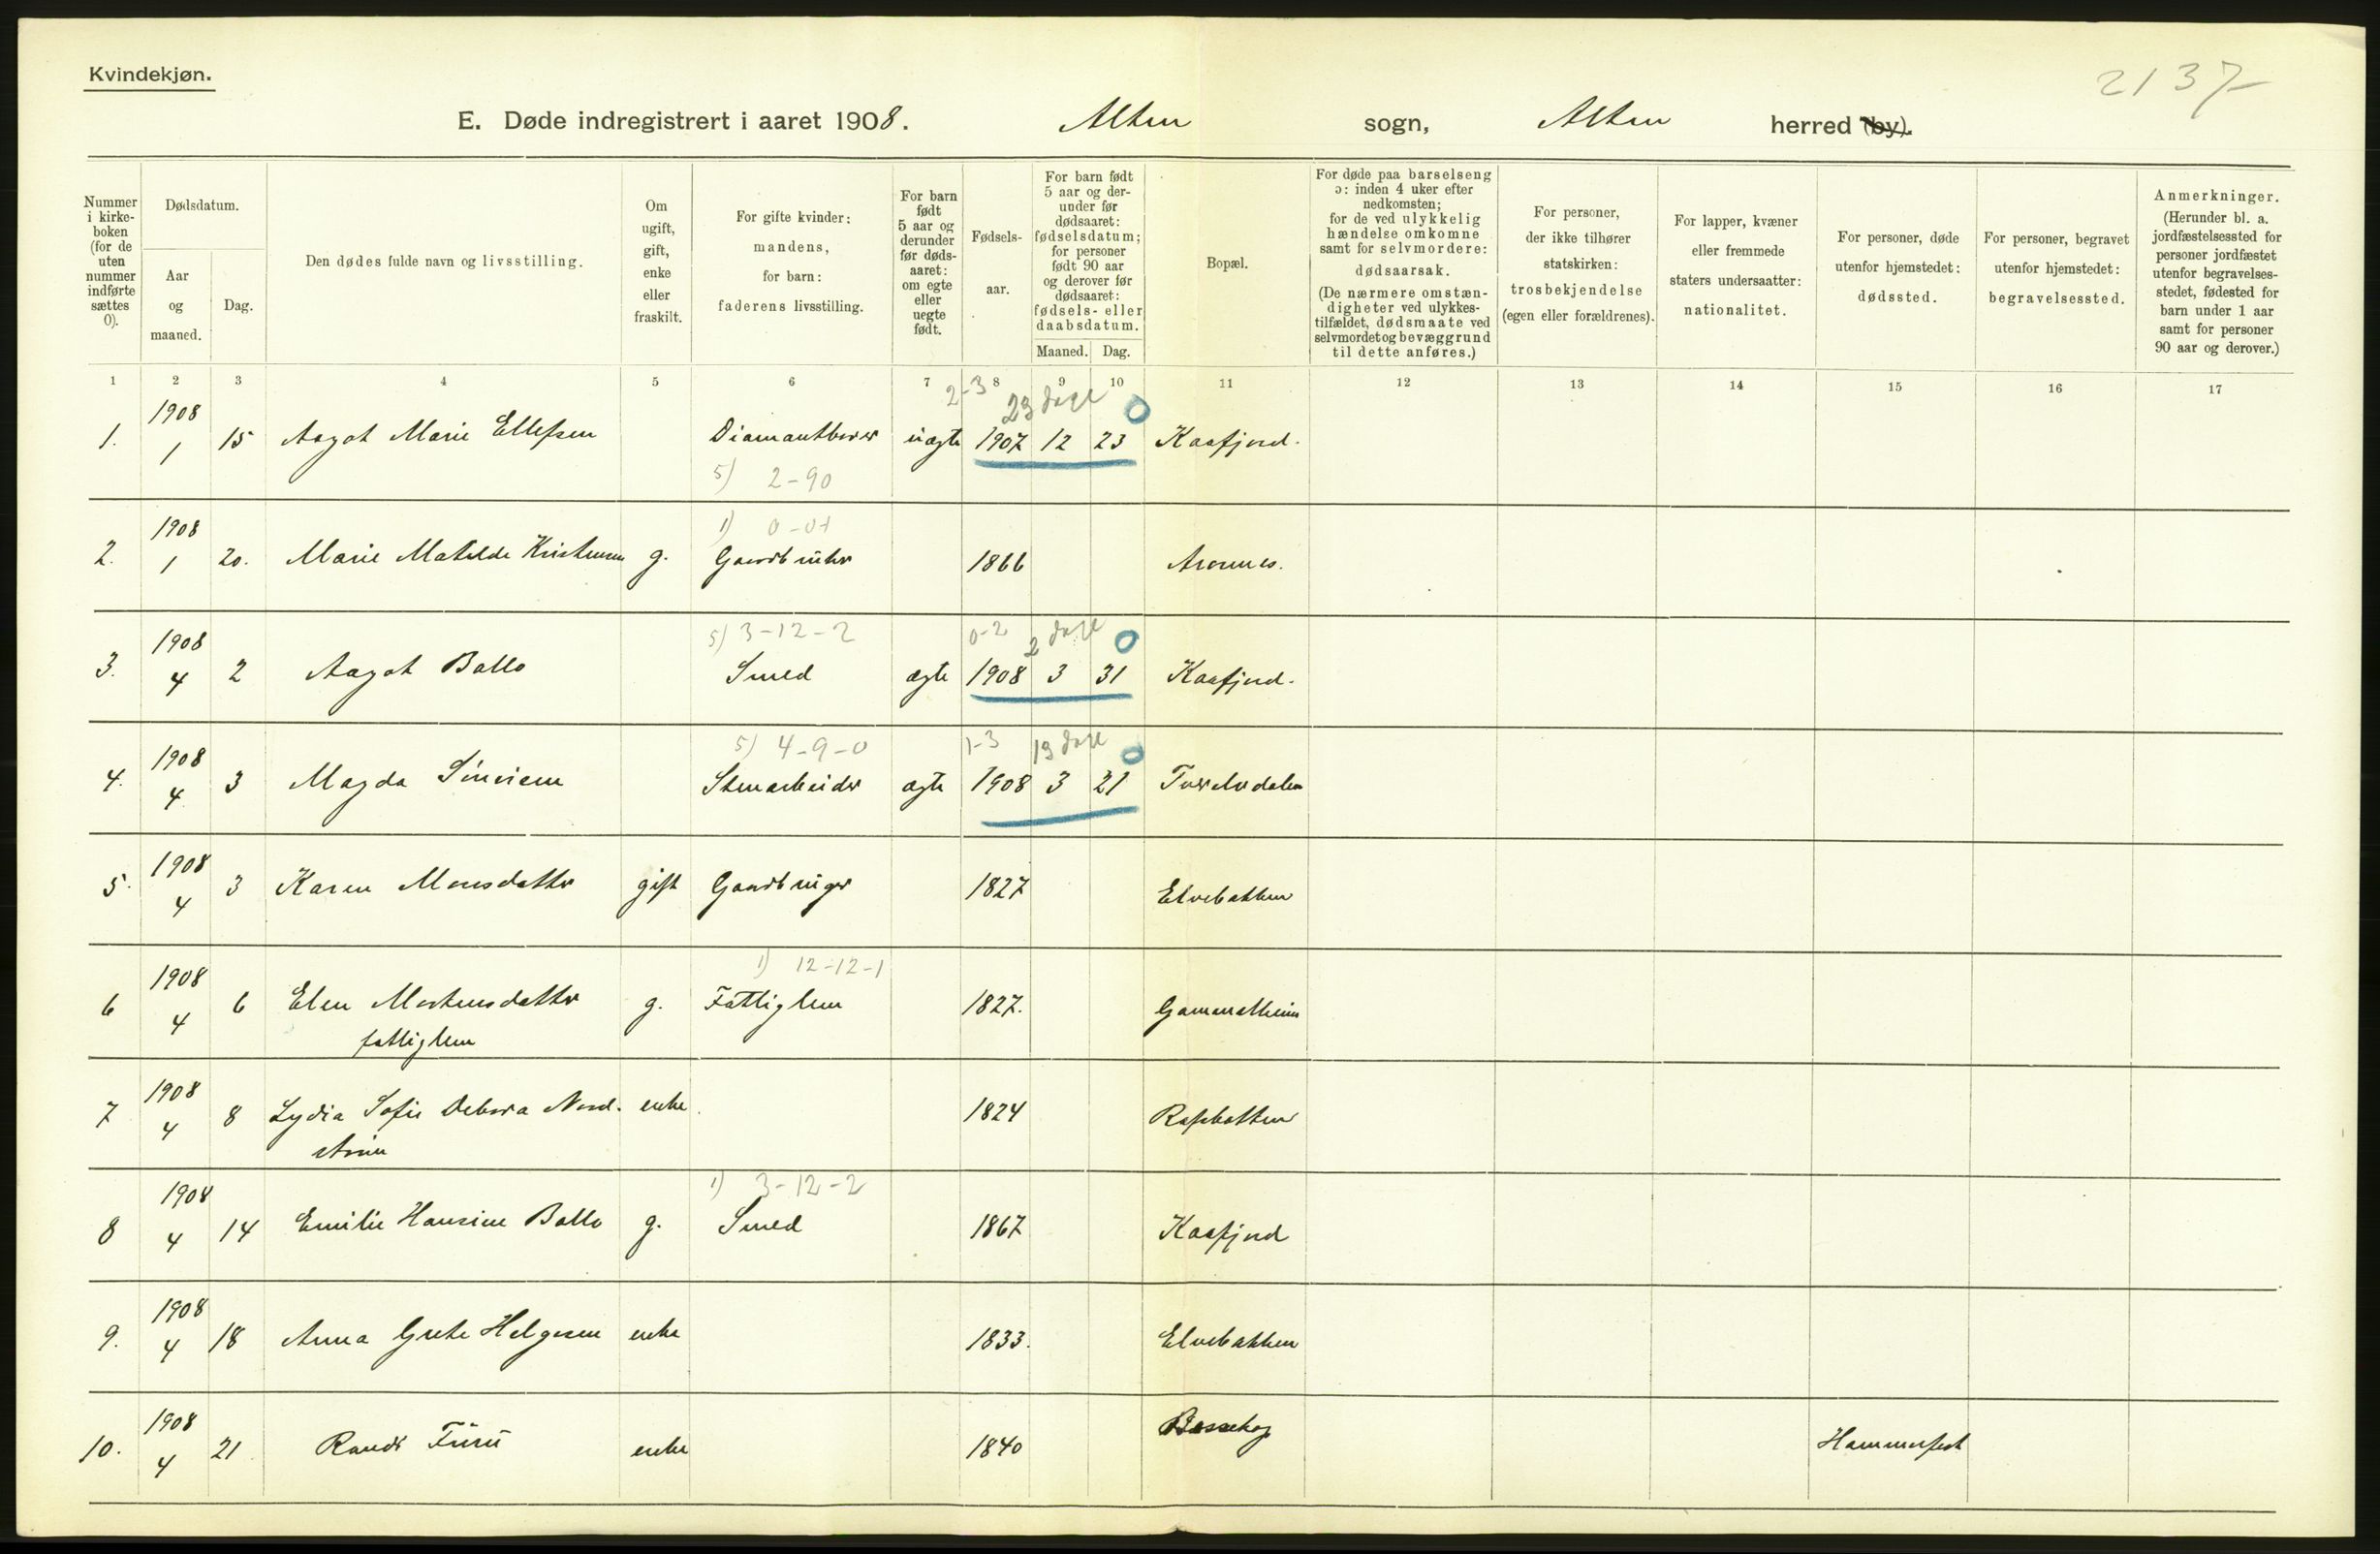 Kvindekjøn.
2137
E. Døde indregistrert i aaret 1908. Alten sogn, Alten herred (by).
Nummer i kirke- boken (for de uten nummer indførte sættes 0).
Dødsdatum.
Aar og maaned.
Dag.
Den dødes fulde navn og livsstilling.
Om ugift, gift, enke eller fraskilt.
For gifte kvinder: mandens, for barn: faderens livsstilling.
For barn født 5 aar og derunder før døds- aaret: om egte eller uegte født.
Fødsels- aar.
For barn født 5 aar og der- under før dødsaaret: fødselsdatum; for personer født 90 aar og derover før dødsaaret: fødsels- eller daabsdatum.
Maaned. Dag.
Bopæl.
For døde paa barselseng ɔ: inden 4 uker efter nedkomsten; for de ved ulykkelig hændelse omkomne samt for selvmordere: dødsaarsak. (De nærmere omstæn- digheter ved ulykkes- tilfældet, dødsmaate ved selvmordet og bevæggrund til dette anføres.)
For personer, der ikke tilhører statskirken: trosbekjendelse (egen eller forældrenes).
For lapper, kvæner eller fremmede staters undersaatter: nationalitet.
For personer, døde utenfor hjemstedet: dødssted.
For personer, begravet utenfor hjemstedet: begravelsessted.
Anmerkninger. (Herunder bl. a. jordfæstelsessted for personer jordfæstet utenfor begravelses- stedet, fødested for barn under 1 aar samt for personer 90 aar og derover.)
1 2 3 4 5 6 7 8 9 10 11 12 13 14 15 16 17
2-3 23 dage 0
1. 1908 1 15 Aagot Marie Ellefsen Diamantborer uægte 1907 12 23 Kaafjord.
5) 2-90
1) 0-01
2. 1908 1 20. Marie Matilde Kristensen g. Gaardbruker 1866 Aronnes.
5) 3-12-2 0-2 2 dage 0
3. 1908 4 2 Aagot Ballo Smed ægte 1908 3 31 Kaafjord.
5) 4-9-0 1-3 13 dage 0
4. 1908 4 3 Magda Simensen Stenarbeider ægte 1908 3 21 Tverelvdalen
5. 1908 4 3 Karen Monsdatter gift Gaardbruger 1827 Elvebakken
1) 12-12-1
6 1908 4 6 Elen Mortensdatter g. Fattiglem 1827. Gammelheim
fattiglem
7 1908 4 8 Lydia Sofie Debora Nord- enke 1824 Rafsbotten
strøm
1) 3-12-2
8 1908 4 14 Emilie Hansine Ballo g. Smed 1867 Kaafjord
9. 1908 4 18 Anna Grete Helgesen enke 1833. Elvebakken
10. 1908 4 21 Randi Furu enke 1840 Bossekop Hammerfest